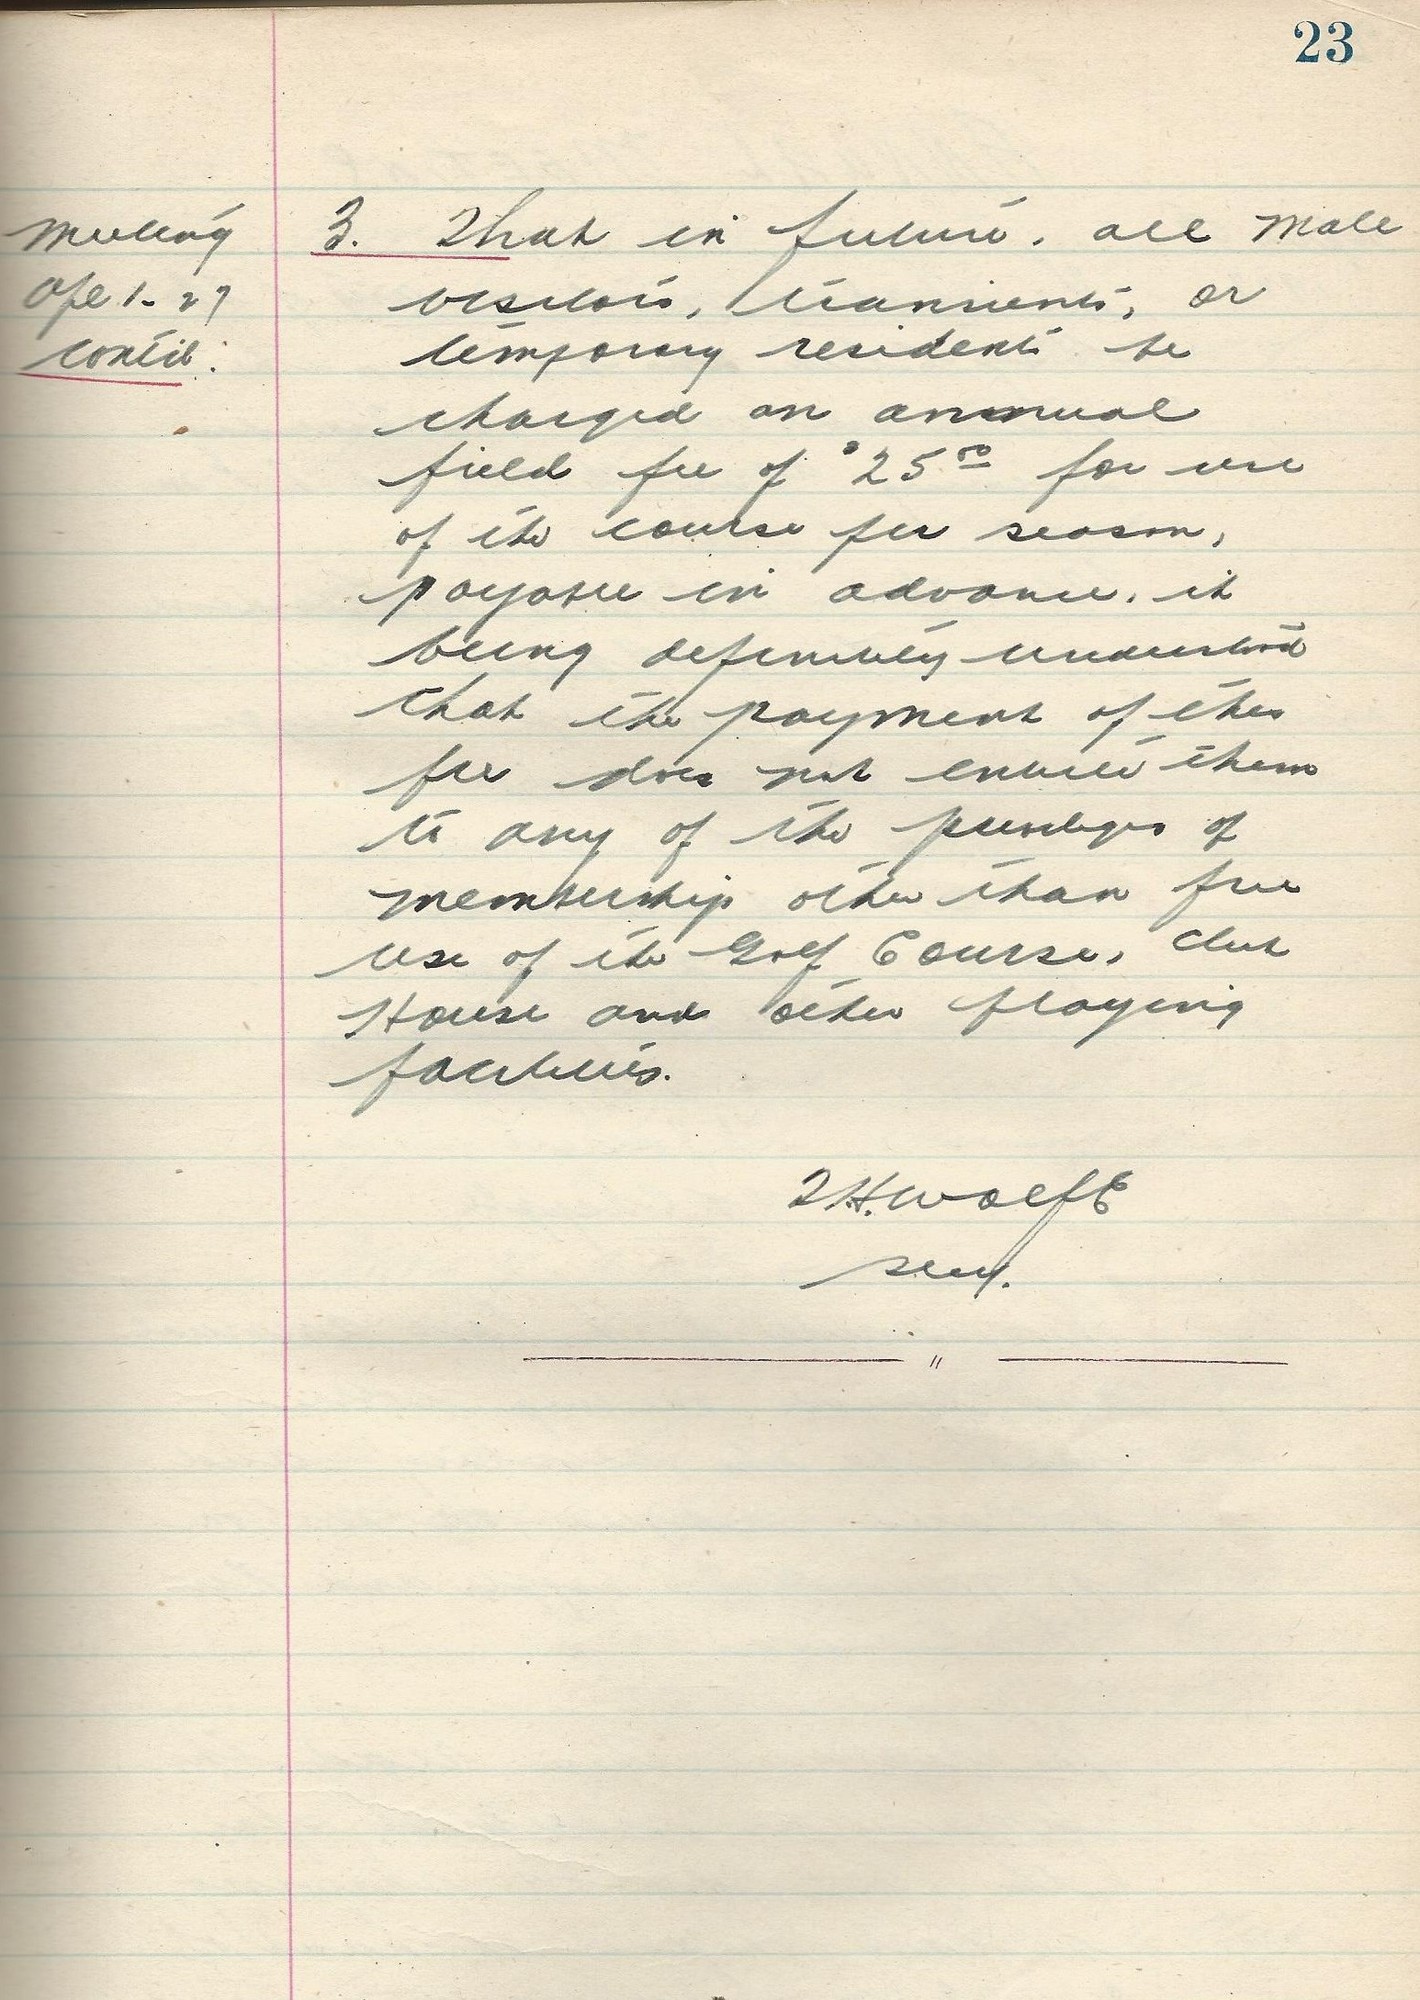 23
Meeting
Apl 1 - 27
Cont'd:
3. That in future, all Male
visitors, transients, or
temporary residents be
charged an annual
field fee of $25.00 for use
of the course per season,
payable in advance. it
being definitely understood
that the payment of this
fee does not entitle them
to any of the privileges of
membership other than free
use of the Golf Course, Club
House and other playing
facilities.
H. Wolfe
Secy.
"